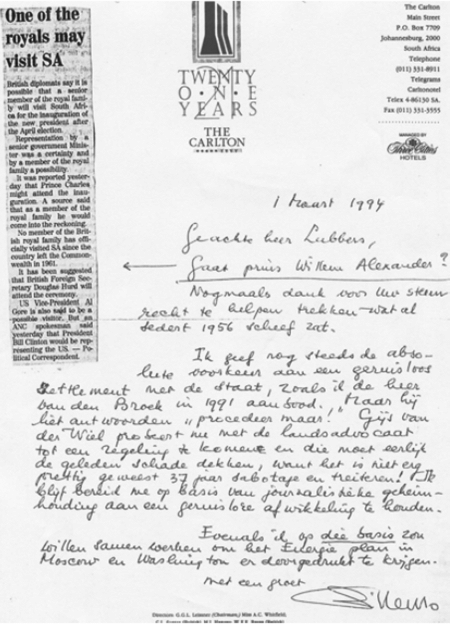 One of the
royals may
visit SA
British diplomats say it is
possible that a senior
member of the royal fami-
ly will visit South Afri-
ca for the inauguration of
the new president after
the April election.
Representation by a
senior government Minis-
ter was a certainty and
by a member of the royal
family a possibility.
It was reported yester-
day that Prince Charles
might attend the inau-
guration. A source said
that as a member of the
royal family he would
come into the reckoning.
No member of the Brit-
ish royal family has offi-
cially visited SA since the
country left the Common-
wealth in 1961.
It has been suggested
that British Foreign Sec-
retary Douglas Hurd will
attend the ceremony.
US Vice-President Al
Gore is also said to be a
possible visitor. But an
ANC spokesman said
yesterday that President
Bill Clinton would be rep-
resenting the US. — Po-
litical Correspondent.
TWENTY
O·N·E
YEARS
THE
CARLTON
The Carlton
Main Street
P.O. Box 7709
Johannesburg, 2000
South Africa
Telephone
(011) 331-8911
Telegrams
Carltonotel
Telex 4-86130 SA.
Fax (011) 331-3555
MANAGED BY
HOTELS
1 Maart 1994
Geachte heer Lubbers,
← Gaat prins Willem Alexander?
Nogmaals dank voor Uw steun
recht te helpen trekken – wat al
sedert 1956 scheef zat.
Ik geef nog steeds de abso-
lute voorkeur aan een geruisloos
settlement met de Staat, zoals ik de heer
van den Broek in 1991 aanbood. Maar hij
liet antwoorden „procedeer maar!" Gijs van
der Wiel probeert nu met de landsadvocaat
tot een regeling te komen en die moet eerlijk
de geleden schade dekken, want het is niet erg
prettig geweest 37 jaar sabotage en treiteren! Ik
blijf bereid me op basis van journalistieke geheim-
houding aan een geruisloze afwikkeling te houden.
Evenals ik op die basis zou
willen samen werken om het Energie plan in
Moscow en Washington er doorgedrukt te krijgen.
met een groet